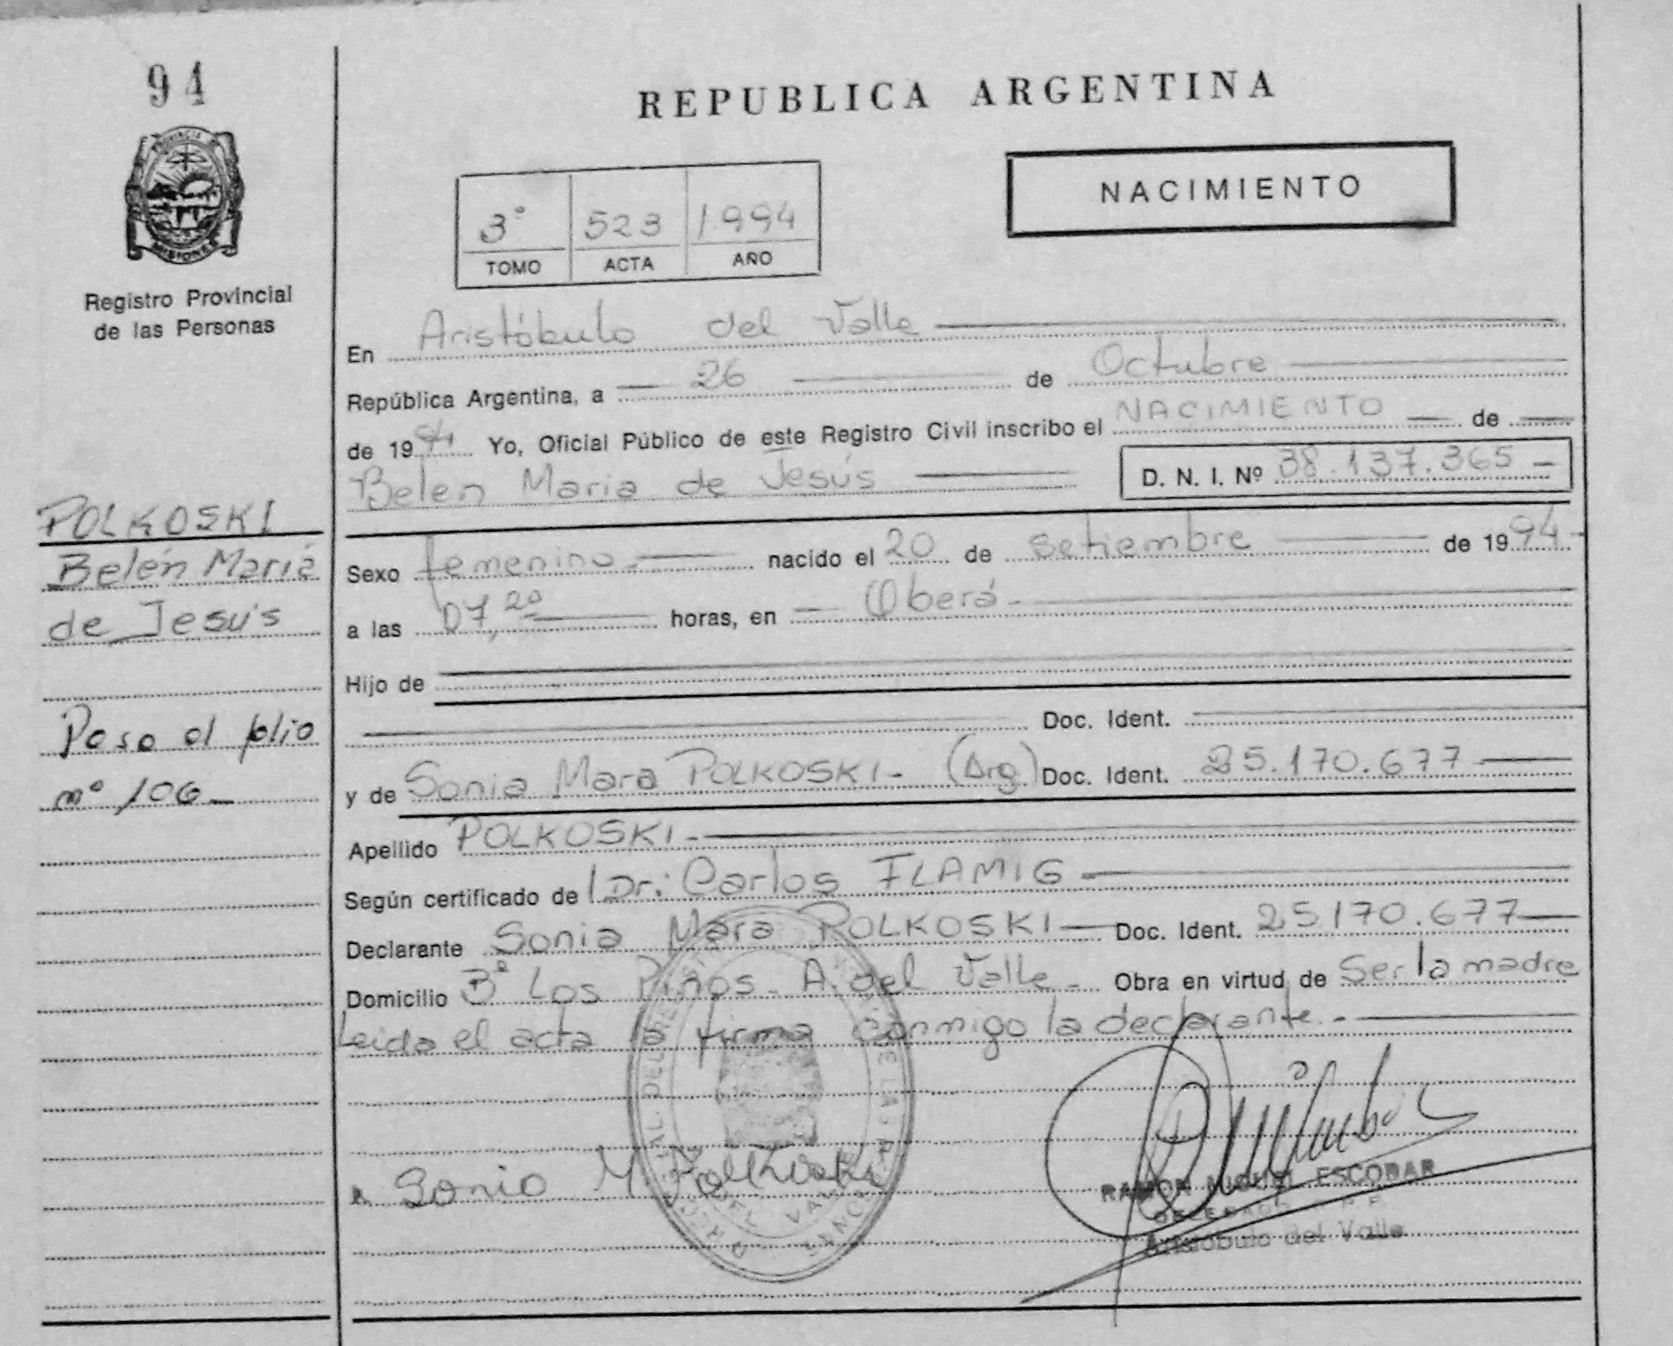 94
PROVINCIA
MISIONES
Registro Provincial
de las Personas
REPUBLICA ARGENTINA
NACIMIENTO
3° 523 1.994
TOMO ACTA AÑO
En Aristóbulo del Valle
República Argentina, a 26 de Octubre
de 1994 Yo, Oficial Público de este Registro Civil inscribo el NACIMIENTO de
Belen Maria de Jesús D. N. I. Nº 38.137.365
POLKOSKI
Belén Maria
de Jesús
Sexo femenino nacido el 20 de Setiembre de 1994
a las 07,20 horas, en Oberá
Hijo de
Doc. Ident.
Paso al folio
nº 106
y de Sonia Mara POLKOSKI - (Arg) Doc. Ident. 25.170.677
Apellido POLKOSKI
Según certificado de Dr: Carlos FLAMIG
Declarante Sonia Mara POLKOSKI Doc. Ident. 25170.677
Domicilio Bº Los Pinos - A. del Valle - Obra en virtud de Ser la madre
Leida el acta la firma conmigo la declarante.-
Sonia M Polkoski
RAMON MIGUEL ESCOBAR
DELEGADO
Aristobulo del Valle